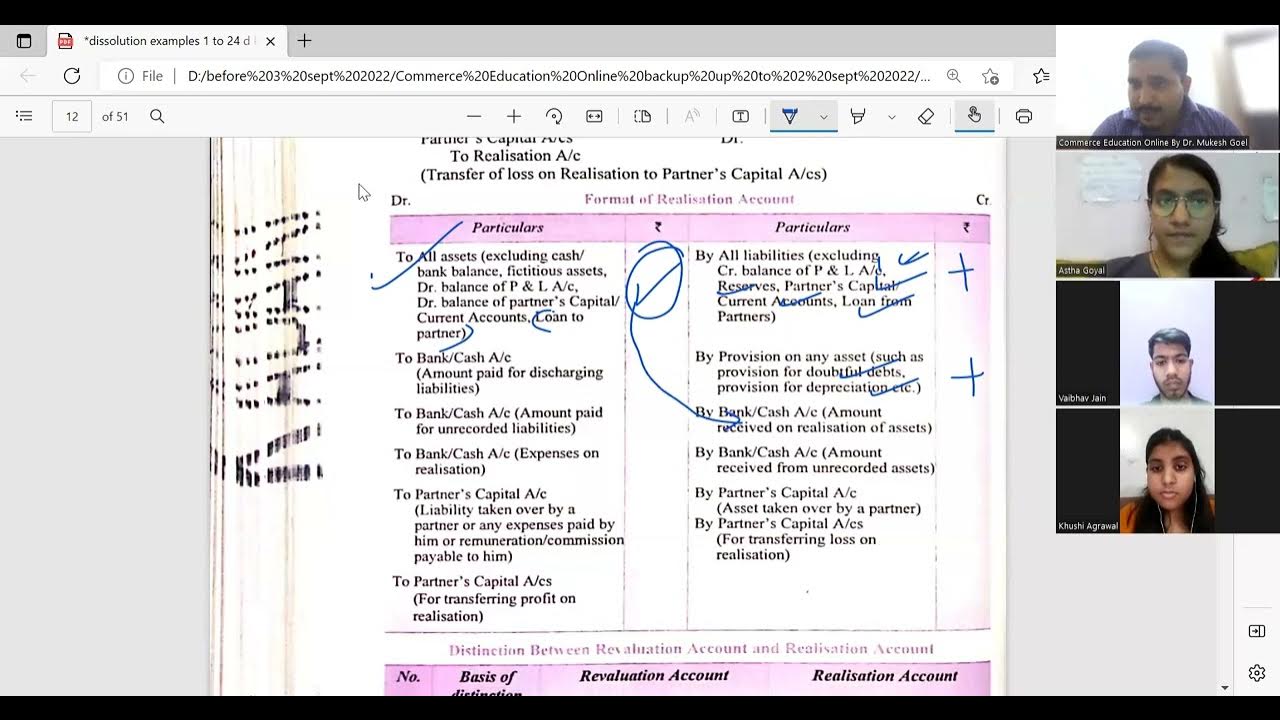 *dissolution examples 1 to 24 d
File
D:/before%203%20sept%202022/Commerce%20Education%20Online%20backup%20up%20to%202%20sept%202022/...
12 of 51
Partner's Capital A/cs Dr.
To Realisation A/c
(Transfer of loss on Realisation to Partner's Capital A/cs)
Dr. Format of Realisation Account Cr.
Particulars ₹ Particulars ₹
To All assets (excluding cash/
bank balance, fictitious assets,
Dr. balance of P & L A/c,
Dr. balance of partner's Capital/
Current Accounts, Loan to
partner)
To Bank/Cash A/c
(Amount paid for discharging
liabilities)
To Bank/Cash A/c (Amount paid
for unrecorded liabilities)
To Bank/Cash A/c (Expenses on
realisation)
To Partner's Capital A/c
(Liability taken over by a
partner or any expenses paid by
him or remuneration/commission
payable to him)
To Partner's Capital A/cs
(For transferring profit on
realisation)
By All liabilities (excluding
Cr. balance of P & L A/c,
Reserves, Partner's Capital/
Current Accounts, Loan from
Partners)
By Provision on any asset (such as
provision for doubtful debts,
provision for depreciation etc.)
By Bank/Cash A/c (Amount
received on realisation of assets)
By Bank/Cash A/c (Amount
received from unrecorded assets)
By Partner's Capital A/c
(Asset taken over by a partner)
By Partner's Capital A/cs
(For transferring loss on
realisation)
+
+
Distinction Between Revaluation Account and Realisation Account
No. Basis of Revaluation Account Realisation Account
distinction
Commerce Education Online By Dr. Mukesh Goel
Astha Goyal
Vaibhav Jain
Khushi Agrawal